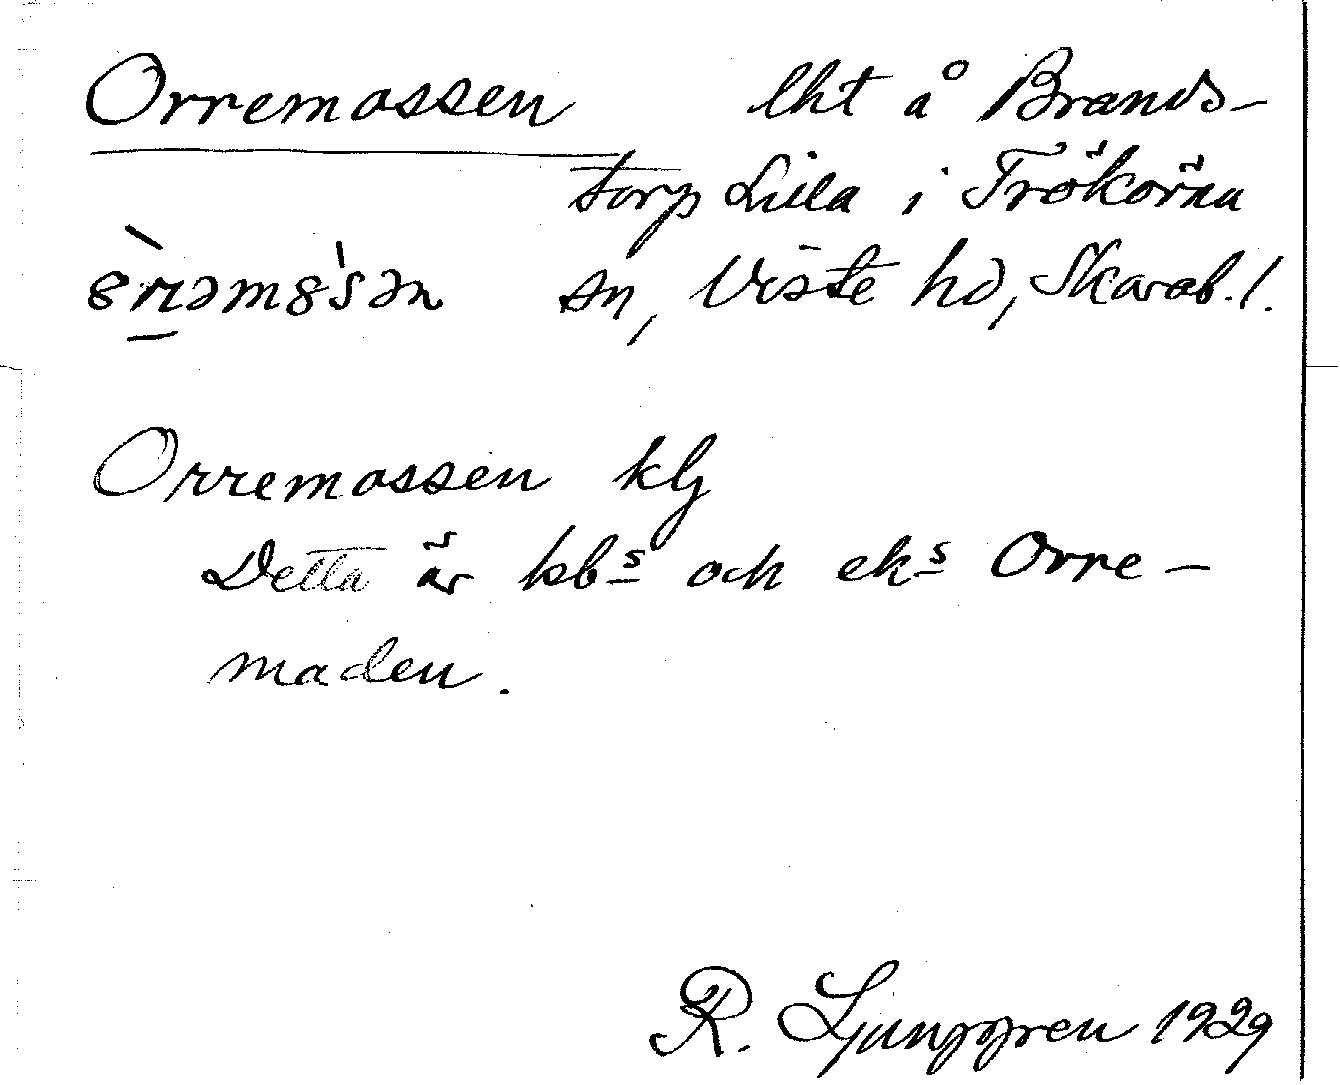 Orremossen lht å Brands-
torp Lilla i Trökörna
sn, Viste hd, Skarab. l.
Orremossen klj
Detta är kbs och eks Orre-
maden.
R. Ljunggren 1929